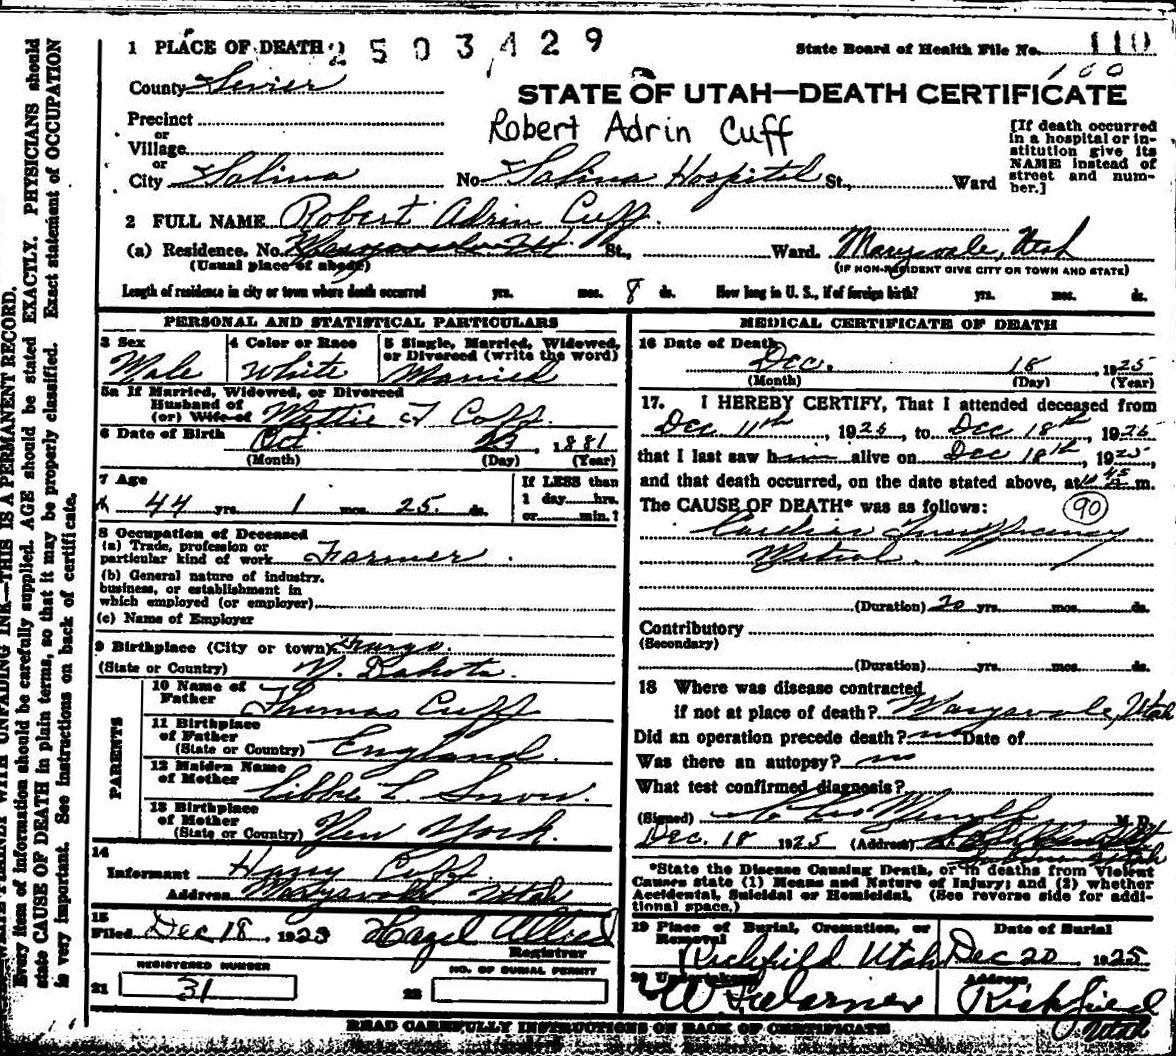 1 PLACE OF DEATH 2503429 State Board of Health File No. 110
County Sevier 100
STATE OF UTAH—DEATH CERTIFICATE
Precinct
or
Village
or
City Salina No Salina Hospital St., Ward
Robert Adrin Cuff
[If death occurred
in a hospital or in-
stitution give its
NAME instead of
street and num-
ber.]
2 FULL NAME Robert Adrin Cuff.
(a) Residence. No. Marysvale Ut. St., Ward. Marysvale, Utah
(Usual place of abode) (IF NON-RESIDENT GIVE CITY OR TOWN AND STATE)
Length of residence in city or town where death occurred yrs. mos. 8 ds. How long in U. S., if of foreign birth? yrs. mos. ds.
PERSONAL AND STATISTICAL PARTICULARS
3 Sex 4 Color or Race 5 Single, Married, Widowed,
or Divorced (write the word)
Male White Married
5a If Married, Widowed, or Divorced
Husband of
(or) Wife of Cuff
6 Date of Birth Oct 23, 1881
(Month) (Day) (Year)
7 Age If LESS than
1 day hrs.
or min.?
44 yrs. 1 mos. 25 ds.
8 Occupation of Deceased
(a) Trade, profession or
particular kind of work Farmer.
(b) General nature of industry,
business, or establishment in
which employed (or employer)
(c) Name of Employer
9 Birthplace (City or town) Fargo.
(State or Country) N. Dakota
PARENTS
10 Name of
Father Thomas Cuff
11 Birthplace
of Father
(State or Country) England.
12 Maiden Name
of Mother Libbe L. Snow.
13 Birthplace
of Mother
(State or Country) New York.
14
Informant Harry Cuff
Address Marysvale Utah
15
Filed Dec 18, 1925 Hazel Allred
Registrar
REGISTERED NUMBER NO. OF BURIAL PERMIT
21 31 22
MEDICAL CERTIFICATE OF DEATH
16 Date of Death
Dec. 18, 1925
(Month) (Day) (Year)
17. I HEREBY CERTIFY, That I attended deceased from
Dec 11th, 1925, to Dec 18th, 1925
that I last saw h alive on Dec 18th, 1925
and that death occurred, on the date stated above, at m.
The CAUSE OF DEATH* was as follows: 90
Cardiac Insufficiency
Mitral.
(Duration) 20 yrs. mos. ds.
Contributory
(Secondary)
(Duration) yrs. mos. ds.
18 Where was disease contracted
if not at place of death? Marysvale, Utah
Did an operation precede death? no Date of
Was there an autopsy? no
What test confirmed diagnosis?
(Signed) M. D.
Dec. 18 1925 (Address)
Salina Utah
*State the Disease Causing Death, or in deaths from Violent
Causes state (1) Means and Nature of Injury; and (2) whether
Accidental, Suicidal or Homicidal. (See reverse side for addi-
tional space.)
19 Place of Burial, Cremation, or
Removal Date of Burial
Richfield Utah Dec 20, 1925.
20 Undertaker Address
Richfield
Utah
READ CAREFULLY INSTRUCTIONS ON BACK OF CERTIFICATE
WRITE PLAINLY WITH UNFADING INK—THIS IS A PERMANENT RECORD.
Every item of information should be carefully supplied. AGE should be stated EXACTLY. PHYSICIANS should
state CAUSE OF DEATH in plain terms, so that it may be properly classified. Exact statement of OCCUPATION
is very important. See instructions on back of certificate.